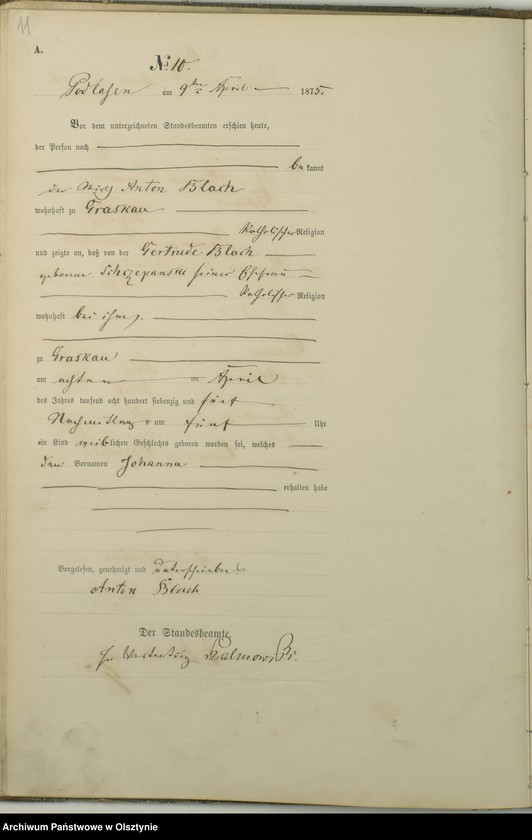 11
A.
№ 10.
Podlasen am 9ten April 1875
Vor dem unterzeichneten Standesbeamten erschien heute,
der Person nach
bekannt
der Wirth Anton Blach
wohnhaft zu Graskau
Katholischer Religion
und zeigte an, daß von der Gertrude Bloch
geborene Schczepanski seiner Ehefrau
Katholischer Religion
wohnhaft bei ihm,
zu Graskau
am achten im April
des Jahres tausend acht hundert siebenzig und fünf
Nachmittags um fünf Uhr
ein Kind weiblichen Geschlechts geboren worden sei, welches
den Vornamen Johanna
erhalten habe
Vorgelesen, genehmigt und unterschrieben
Anton Blach
Der Standesbeamte.
In Vertretung
Archiwum Państwowe w Olsztynie